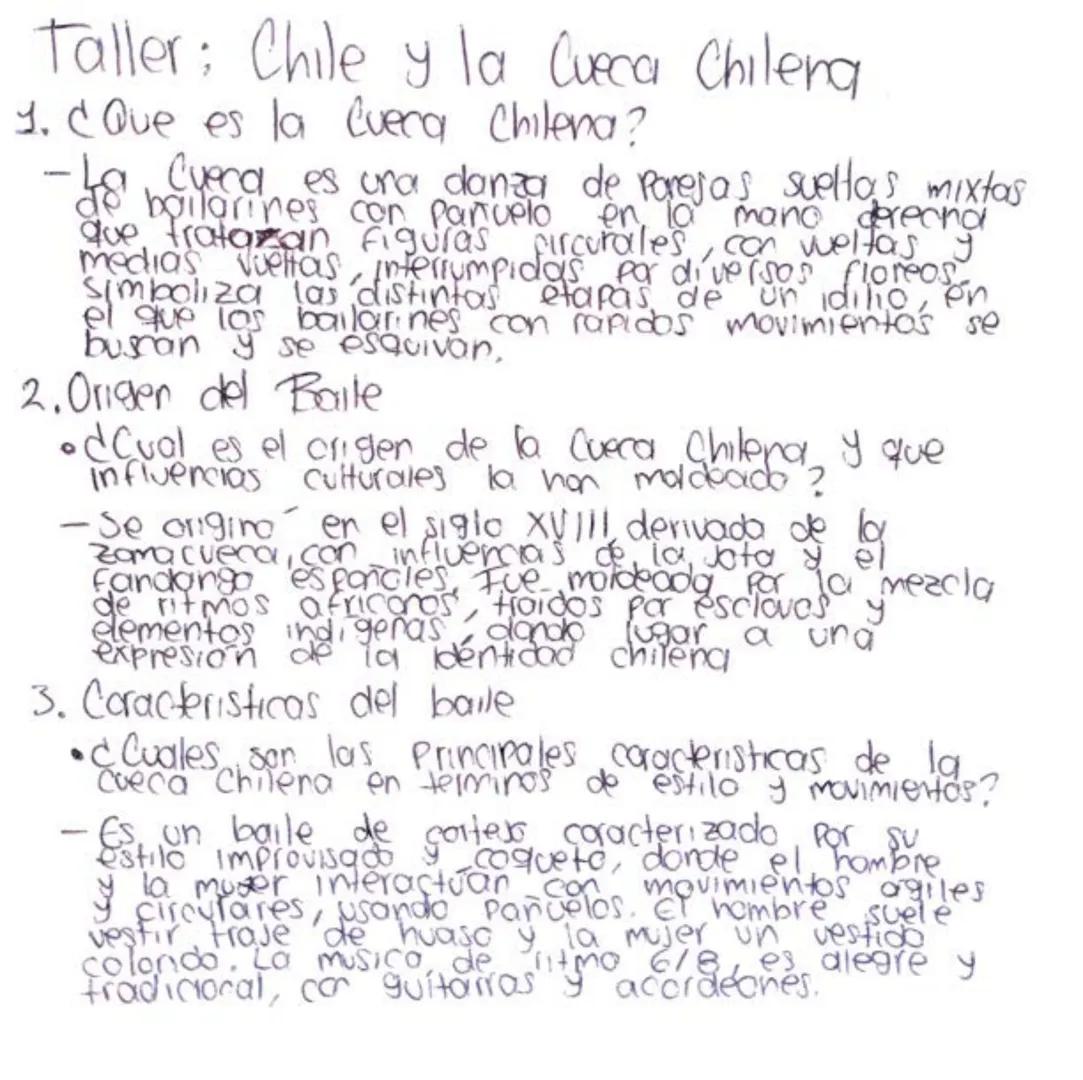 Taller: Chile y la Cueca Chilena
1. ¿Que es la Cueca Chilena?
- La Cueca es una danza de parejas sueltas mixtas
de bailarines con pañuelo en la mano derecha
que tratazan figuras circurales, con vueltas y
medias vueltas, interrumpidas por diversos floreos.
Simboliza las distintas etapas de un idilio, en
el que los bailarines con rapidos movimientos se
buscan y se esquivan.
2. Origen del Baile
• ¿Cual es el origen de la Cueca Chilena y que
influencias culturales la han moldeado?
- Se originó en el siglo XVIII, derivada de la
zamacueca, con influencias de la Jota y el
fandango españoles. Fue moldeada por la mezcla
de ritmos africanos, traidos por esclavos y
elementos indigenas, dando lugar a una
expresión de la identidad chilena
3. Caracteristicas del baile
• ¿Cuales son las principales caracteristicas de la
cueca Chilena en terminos de estilo y movimientos?
- Es un baile de cortejo caracterizado por su
estilo improvisado y coqueto, donde el hombre
y la mujer interactúan con movimientos agiles
y circulares, usando pañuelos. El hombre suele
vestir traje de huaso y la mujer un vestido
colorido. La musica, de ritmo 6/8, es alegre y
tradicional, con guitarras y acordeones.